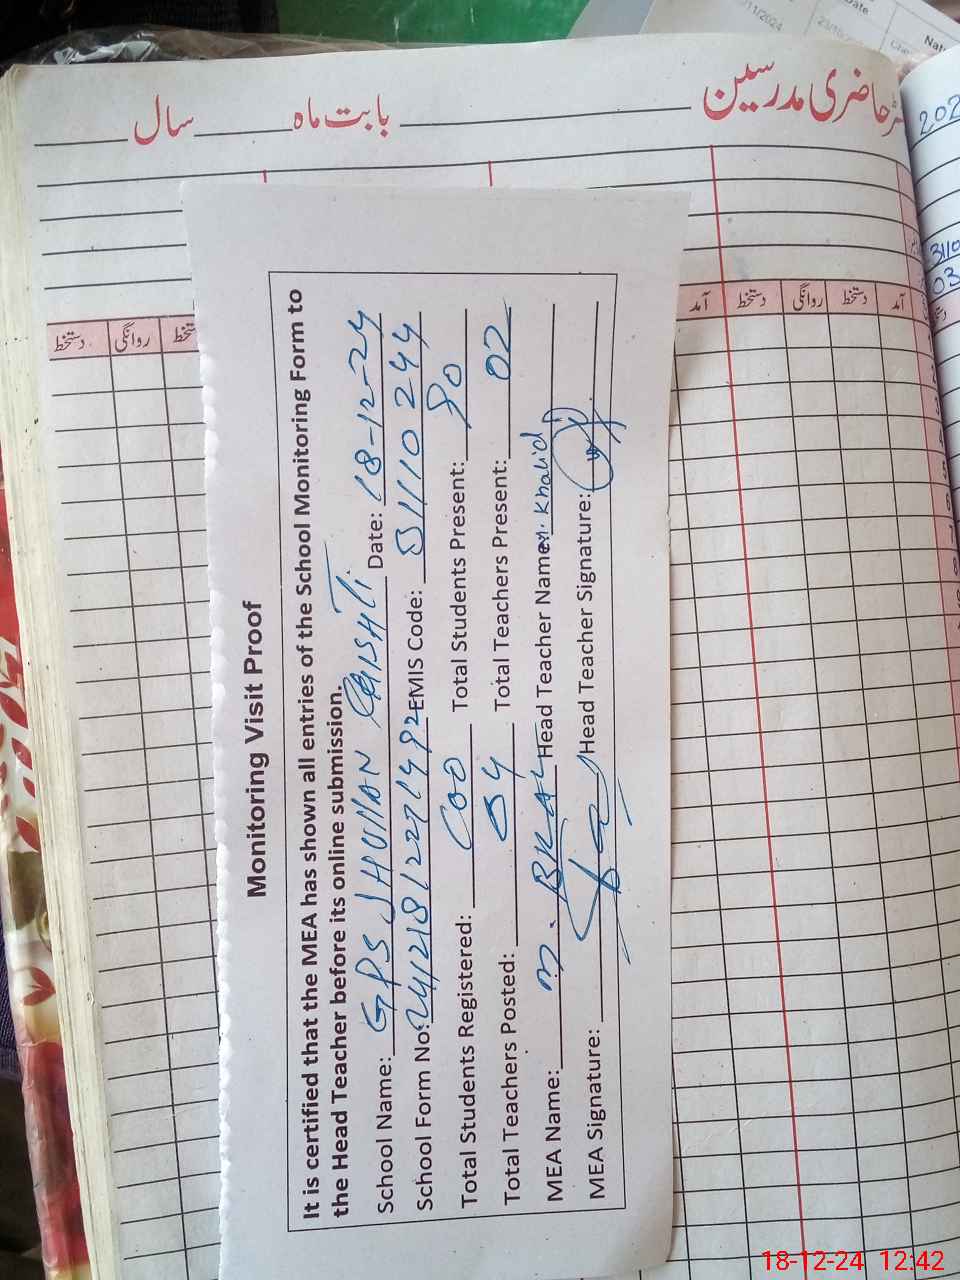 رحاضری مدرسین ______ بابت ماہ ______ سال ______
آمد دستخط روانگی دستخط آمد
دستخط روانگی دستخط
Monitoring Visit Proof
It is certified that the MEA has shown all entries of the School Monitoring Form to
the Head Teacher before its online submission.
School Name: GPS JHULLAN Date: 18-12-24
School Form No: EMIS Code: 31110244
Total Students Registered: Total Students Present: 90
Total Teachers Posted: 04 Total Teachers Present: 02
MEA Name: Head Teacher Name: M. Khalid
MEA Signature: Head Teacher Signature:
/11/2024
Date
Nat
202
3110
03
18-12-24 12:42